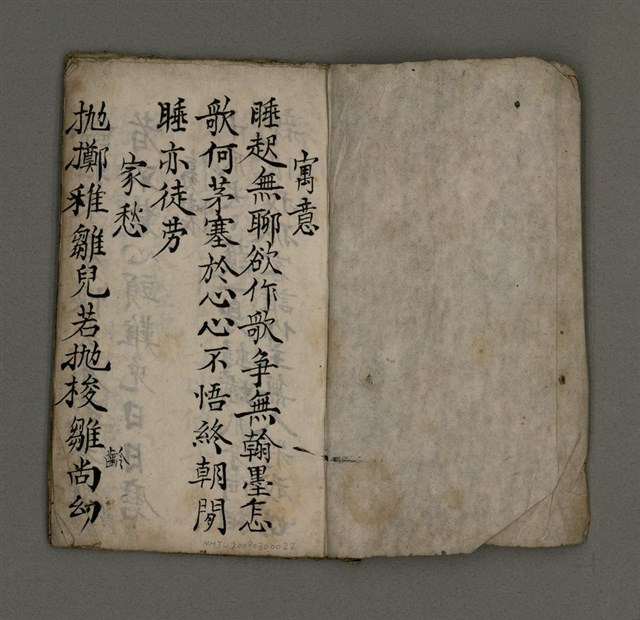 寓意
睡起無聊欲作歌爭無翰墨怎
歌何茅塞於心心不悟終朝閒
睡亦徒劳
家愁
抛擲稚雛兒若抛梭雛尚幼
齡
NMTL20090300022